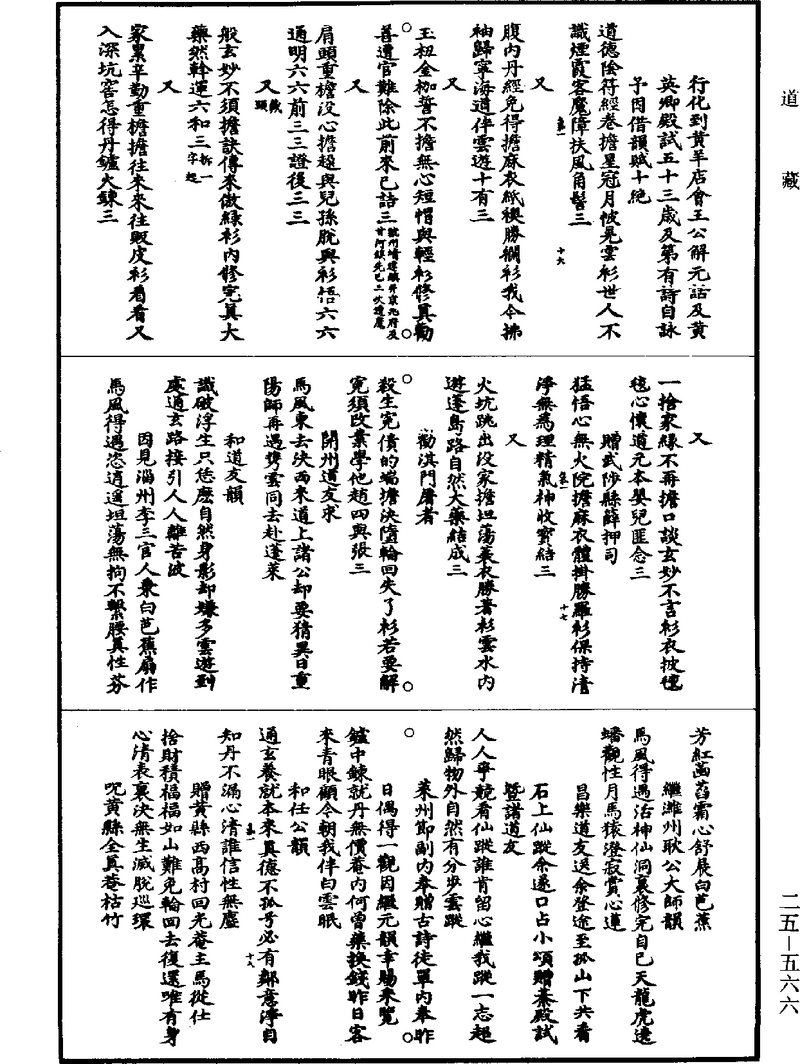 道藏
行化到黃羊店會王公解元話及黃
英卿殿試五十三歲及第有詩自詠
予因借韻賦十絶
道德陰符經卷擔星冠月帔晃雲衫世人不
識煙霞客魔障扶風角髻三
又
腹内丹經免得擔麻衣紙襖勝襴衫我今拂
袖歸寧海道伴雲遊十有三
又
玉杻金枷誓不擔無心短帽與輕衫修真勸
善遭官難除此前來已詰三
又
肩頭重擔没心擔趕與兒孫脫與衫悟六六
通明六六前三三證後三三
又藏頭
般玄妙不須擔訣傳來做緑衫内修完真大
藥然斡運六和三拆一字起
又
家累辛勤重擔擔往來來往販皮衫看看又
入深坑窖怎得丹爐火鍊三
又
一捨家緣不再擔口談玄妙不言衫衣披氊
毯心懷道元本嬰兒匪念三
贈武陟縣薛押司
猛悟心無火院擔麻衣體掛勝羅衫保持清
淨無爲理精氣神收寶結三
又
火坑跳出没家擔坦蕩蓑衣勝著衫雲水内
遊蓬島路自然大藥結成三
勸淇門屠者
殺生寃債的端擔決墮輪回失了衫若要解
寃須改業學他趙四與張三
開州道友求
馬風東去決西來道上諸公却要猜異日重
陽師再遇雙雲同去赴蓬萊
和道友韻
識破浮生只恁麽自然身影却嫌多雲遊到
處通玄路接引人人離苦波
因見淄州李三官人乘白芭蕉扇作
馬風得遇恣逍遥坦蕩無拘不繫腰真性芬
芳紅菡萏霜心舒展白芭蕉
繼濰州耿公大師韻
馬風得遇活神仙洞裏修完自己天龍虎遶
蟠觀性月馬猿澄寂賞心蓮
昌樂道友送余登途至孤山下共看
石上仙蹤余遂口占小頌贈綦殿試
暨諸道友
人人寧競看仙蹤誰肯留心繼我蹤一志超
然歸物外自然有分步雲蹤
萊州節副内奉贈古詩徒單内奉昨
日偶得一觀因繼元韻幸賜采覽
爐中鍊就丹無價菴内何曾藥換錢昨日客
來青眼顧今朝我伴白雲眠
和任公韻
通玄養就本來真德不孤兮必有鄰意淨自
知丹不漏心清誰信性無塵
贈黃縣西高村回光菴主馬從仕
捨財積福福如山難免輪回去復還唯有身
心清表裏決無生滅脫巡環
呪黃縣全真菴枯竹
二五—五六六